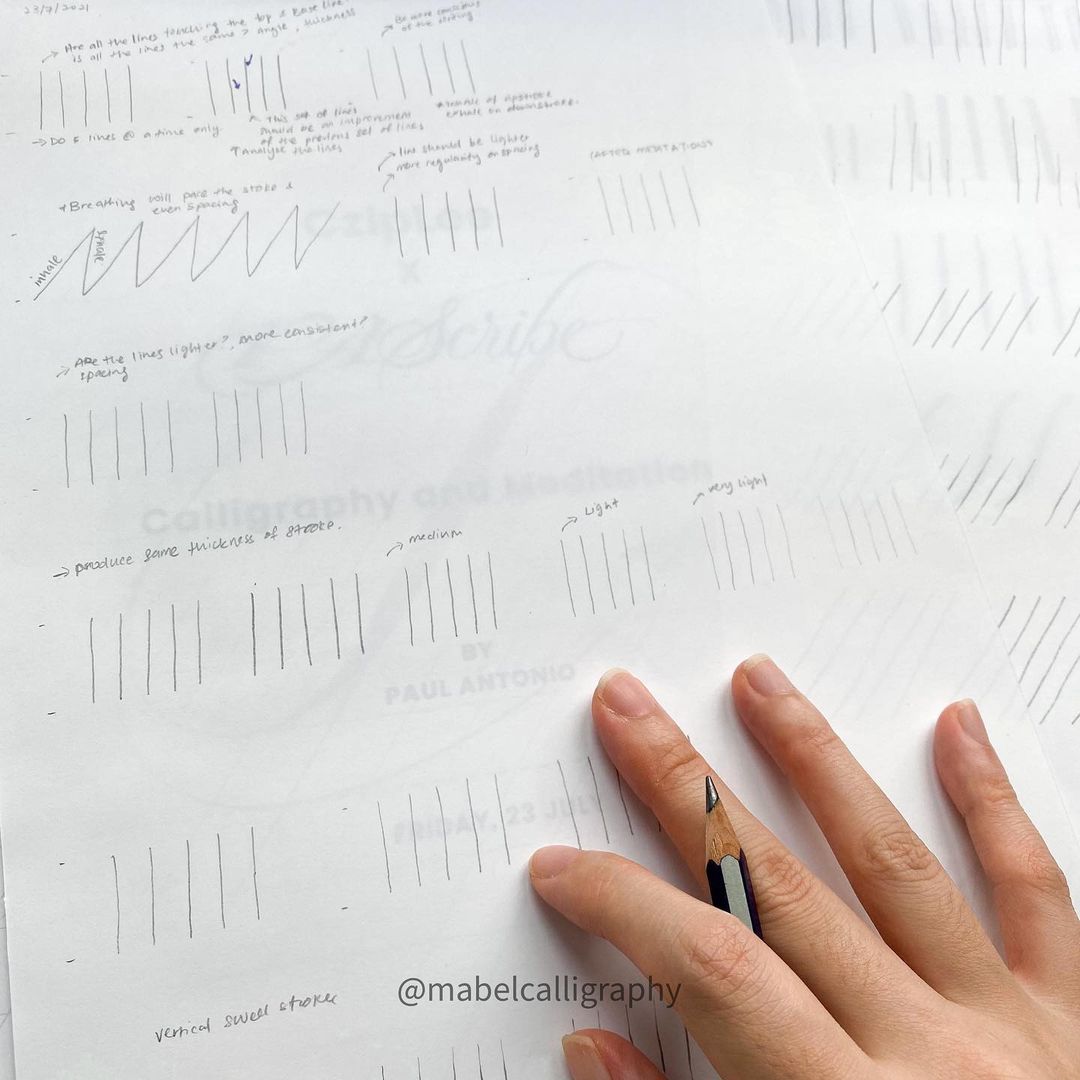 23/7/2021
→ Are all the lines touching the top & base line?
is all the lines the same > angle, thickness
Be more conscious
of the
→ DO 5 lines @ a time only
^ This set of lines
should be an improvement
of the previous set of lines
↑ Analyse the lines
* inhale at upstroke
exhale on downstroke.
+ Breathing will pace the stroke &
even spacing
inhale
→ line should be lighter
→ more regularity on spacing
(AFTER MEDITATION)
Cziploo
X
Scribe
→ Are the lines lighter?, more consistent?
spacing
Calligraphy and Meditation
→ produce same thickness of stroke.
→ medium
→ Light
→ very light
BY
PAUL ANTONIO
FRIDAY, 23 JULY
@mabelcalligraphy
vertical swell strokes